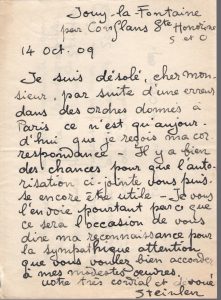 Jouy-la-Fontaine
par Conflans Ste Honorine
S et O
14 oct. 09
Je suis désolé, cher mon-
sieur, par suite d'une erreur
dans des ordres donnés à
Paris ce n'est qu'aujour-
d'hui que je reçois ma cor
respondance - Il y a bien
des chances pour que l'auto-
risation ci-jointe vous puis-
se encore être utile - Je vous
l'envoie pourtant parce que
ce sera l'occasion de vous
dire ma reconnaissance pour
la sympathique attention
que vous voulez bien accorder
à mes modestes œuvres.
votre très cordial et dévoué
Steinlen